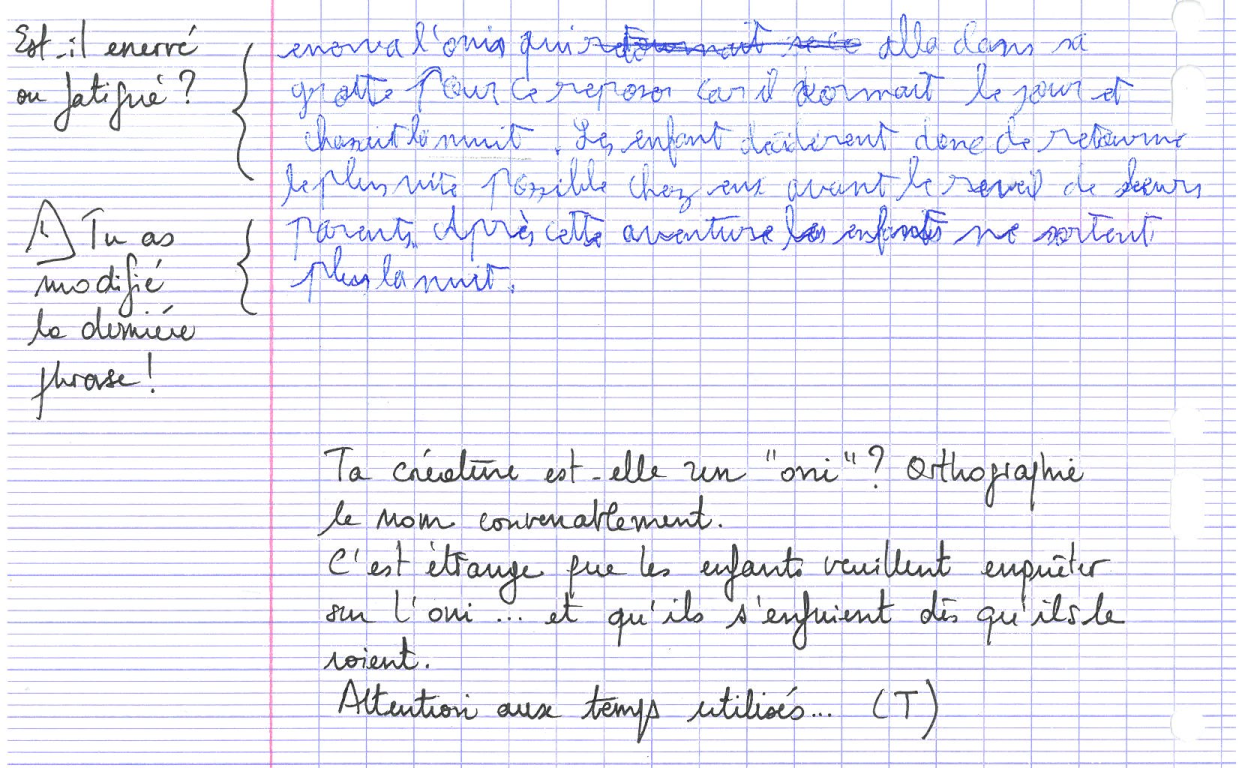 Est-il enervé
ou fatigué ?
enerva l'onis qui retournait se alla dans sa
grotte pour ce reposer car il dormait le jour et
chasait la nuit. Les enfant décidèrent donc de retourne
le plus vite possible chez eux avant le reveil de leurs
parents. Après cette aventure les enfants ne sortent
plus la nuit.
Tu as
modifié
la dernière
phrase !
Ta créature est-elle un "oni" ? Orthographie
le nom convenablement.
C'est étrange que les enfants veuillent enquêter
sur l'oni ... et qu'ils s'enfuient dès qu'ils le
voient.
Attention aux temps utilisés... (T)